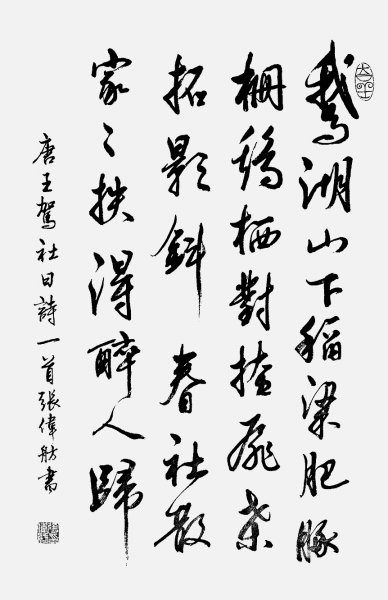 鵝湖山下稻粱肥豚
柵鷄栖對掩扉桑
柘影斜春社散
家々扶得醉人歸
唐王駕社日詩一首張偉舫書